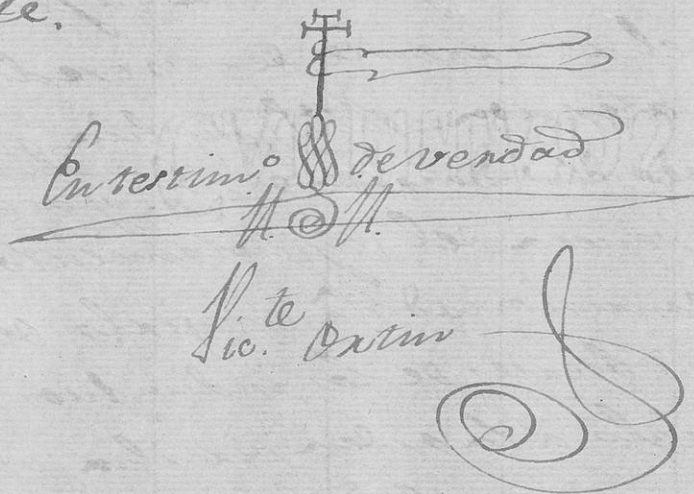 te.
En testim.º de verdad
Vic.te Ortin